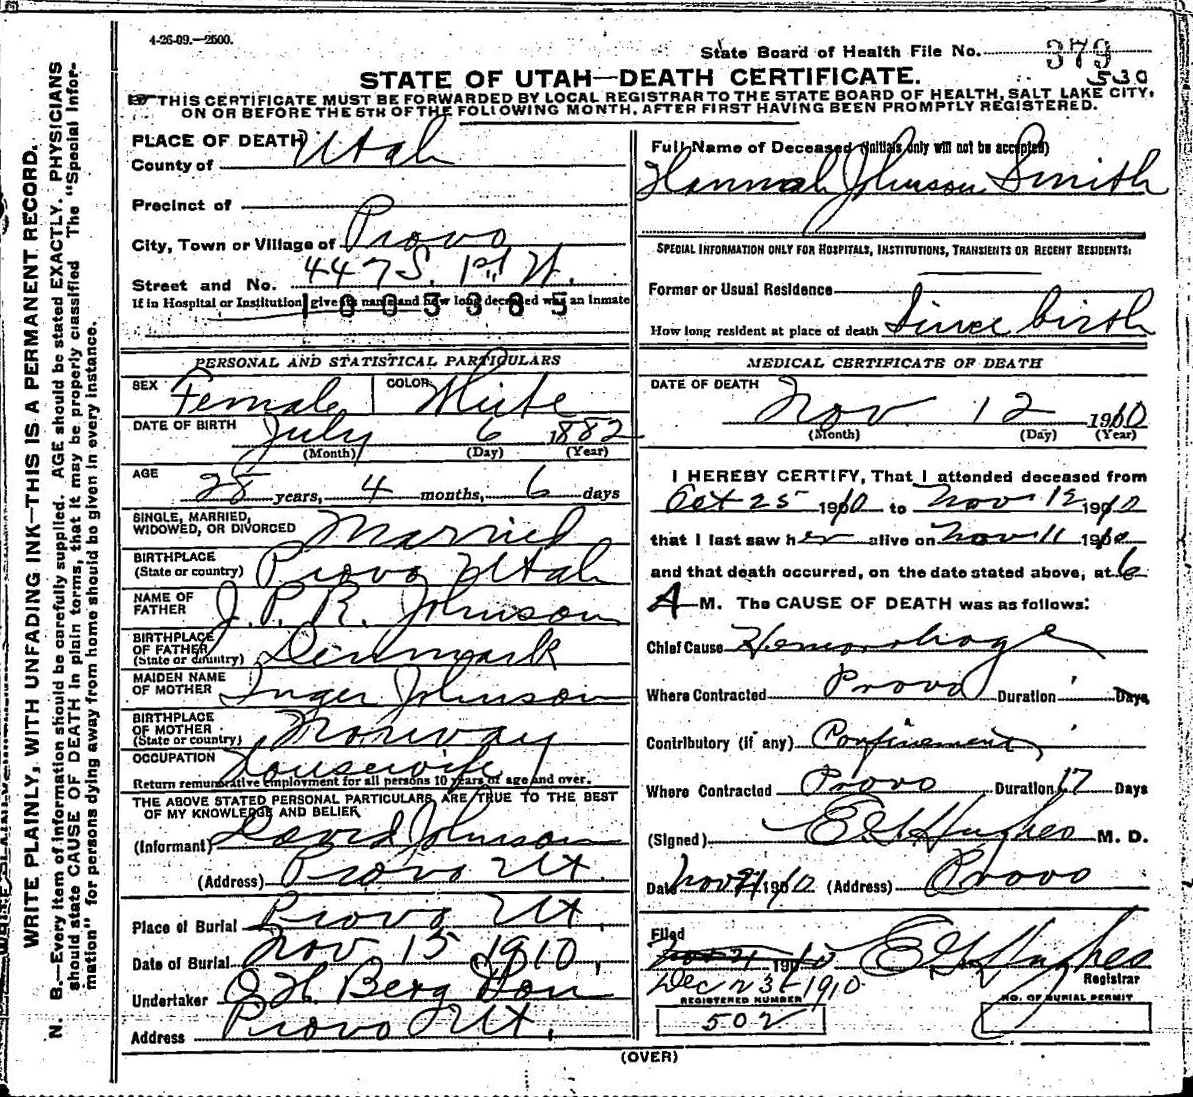 4-26-09.—2500.
State Board of Health File No. 379
530
STATE OF UTAH—DEATH CERTIFICATE.
THIS CERTIFICATE MUST BE FORWARDED BY LOCAL REGISTRAR TO THE STATE BOARD OF HEALTH, SALT LAKE CITY,
ON OR BEFORE THE 5TH OF THE FOLLOWING MONTH, AFTER FIRST HAVING BEEN PROMPTLY REGISTERED.
WRITE PLAINLY, WITH UNFADING INK—THIS IS A PERMANENT RECORD.
N. B.—Every item of information should be carefully supplied. AGE should be stated EXACTLY. PHYSICIANS
should state CAUSE OF DEATH in plain terms, that it may be properly classified The "Special Infor-
mation" for persons dying away from home should be given in every instance.
PLACE OF DEATH
County of Utah
Precinct of
City, Town or Village of Provo
Street and No. 447 S. 1st W.
If in Hospital or Institution give its name and how long deceased was an inmate
1003385
PERSONAL AND STATISTICAL PARTICULARS
SEX Female COLOR White
DATE OF BIRTH July 6 1882
(Month) (Day) (Year)
AGE 28 years, 4 months, 6 days
SINGLE, MARRIED,
WIDOWED, OR DIVORCED Married
BIRTHPLACE
(State or country) Provo Utah
NAME OF
FATHER J. P. R. Johnson
BIRTHPLACE
OF FATHER
(State or country) Denmark
MAIDEN NAME
OF MOTHER Inger Johnson
BIRTHPLACE
OF MOTHER
(State or country) Norway
OCCUPATION Housewife
Return remunerative employment for all persons 10 years of age and over.
THE ABOVE STATED PERSONAL PARTICULARS ARE TRUE TO THE BEST
OF MY KNOWLEDGE AND BELIEF
(Informant) David Johnson
(Address) Provo Ut.
Place of Burial Provo Ut,
Date of Burial Nov 15 1910,
Undertaker O H Berg Son
Address Provo Ut,
Full Name of Deceased (Initials only will not be accepted)
Hannah Johnson Smith
SPECIAL INFORMATION ONLY FOR HOSPITALS, INSTITUTIONS, TRANSIENTS OR RECENT RESIDENTS:
Former or Usual Residence
How long resident at place of death Since birth
MEDICAL CERTIFICATE OF DEATH
DATE OF DEATH
Nov 12 1910
(Month) (Day) (Year)
I HEREBY CERTIFY, That I attended deceased from
Oct 25 1910 to Nov 12 1910
that I last saw her alive on Nov 11 1910
and that death occurred, on the date stated above, at 6
A M. The CAUSE OF DEATH was as follows:
Chief Cause Hemorrhage
Where Contracted Provo Duration Days
Contributory (if any) Confinement
Where Contracted Provo Duration 17 Days
(Signed) E G Hughes M. D.
Date Nov 1910 (Address) Provo
Filed
Nov 21 1910 E G Hughes
Dec 23 1910 Registrar
REGISTERED NUMBER NO. OF BURIAL PERMIT
502
(OVER)